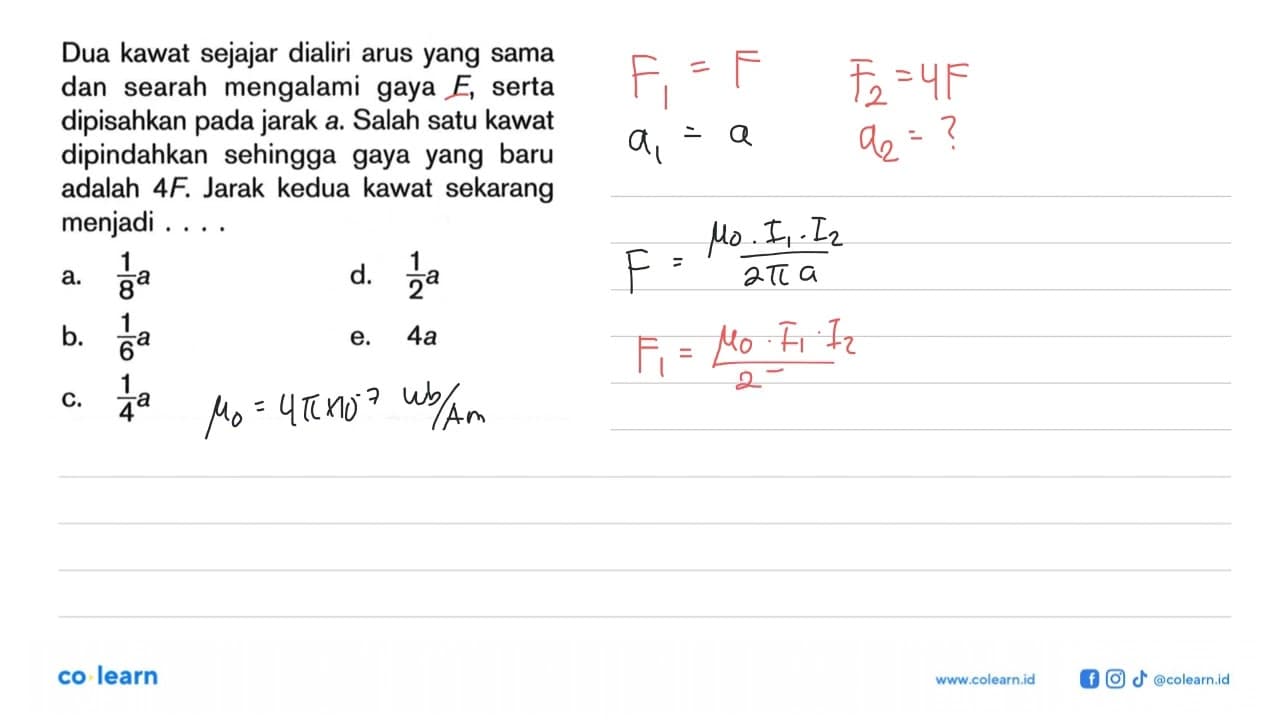 Dua kawat sejajar dialiri arus yang sama
dan searah mengalami gaya F, serta
dipisahkan pada jarak a. Salah satu kawat
dipindahkan sehingga gaya yang baru
adalah 4F. Jarak kedua kawat sekarang
menjadi . . . .
a. 1/8 a
d. 1/2 a
b. 1/6 a
e. 4a
c. 1/4 a
μ0 = 4π×10^-7 Wb/Am
F1 = F
F2 = 4F
a1 = a
a2 = ?
F = μ0 . I1 . I2 / 2π a
F1 = μ0 . I1 . I2 / 2
co·learn
www.colearn.id
@colearn.id